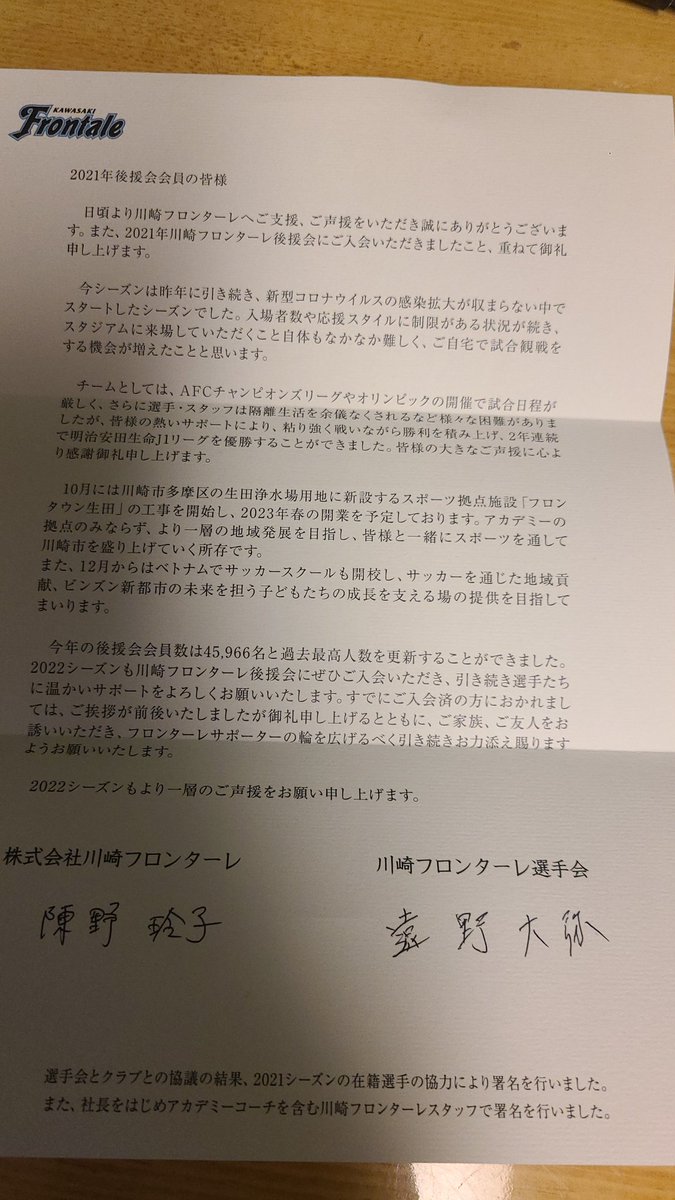 KAWASAKI
Frontale
2021年後援会会員の皆様
日頃より川崎フロンターレへご支援、ご声援をいただき誠にありがとうございま
す。また、2021年川崎フロンターレ後援会にご入会いただきましたこと、重ねて御礼
申し上げます。
今シーズンは昨年に引き続き、新型コロナウイルスの感染拡大が収まらない中で
スタートしたシーズンでした。入場者数や応援スタイルに制限がある状況が続き、
スタジアムに来場していただくこと自体もなかなか難しく、ご自宅で試合観戦を
する機会が増えたことと思います。
チームとしては、AFCチャンピオンズリーグやオリンピックの開催で試合日程が
厳しく、さらに選手・スタッフは隔離生活を余儀なくされるなど様々な困難がありま
したが、皆様の熱いサポートにより、粘り強く戦いながら勝利を積み上げ、2年連続
で明治安田生命J1リーグを優勝することができました。皆様の大きなご声援に心よ
り感謝御礼申し上げます。
10月には川崎市多摩区の生田浄水場用地に新設するスポーツ拠点施設「フロン
タウン生田」の工事を開始し、2023年春の開業を予定しております。アカデミーの
拠点のみならず、より一層の地域発展を目指し、皆様と一緒にスポーツを通して
川崎市を盛り上げていく所存です。
また、12月からはベトナムでサッカースクールも開校し、サッカーを通じた地域貢
献、ビンズン新都市の未来を担う子どもたちの成長を支える場の提供を目指して
まいります。
今年の後援会会員数は45,966名と過去最高人数を更新することができました。
2022シーズンも川崎フロンターレ後援会にぜひご入会いただき、引き続き選手たち
に温かいサポートをよろしくお願いいたします。すでにご入会済の方におかれまし
ては、ご挨拶が前後いたしましたが御礼申し上げるとともに、ご家族、ご友人をお
誘いいただき、フロンターレサポーターの輪を広げるべく引き続きお力添え賜ります
ようお願いいたします。
2022シーズンもより一層のご声援をお願い申し上げます。
株式会社川崎フロンターレ
川崎フロンターレ選手会
陳野 玲子
遠野 大弥
選手会とクラブとの協議の結果、2021シーズンの在籍選手の協力により署名を行いました。
また、社長をはじめアカデミーコーチを含む川崎フロンターレスタッフで署名を行いました。